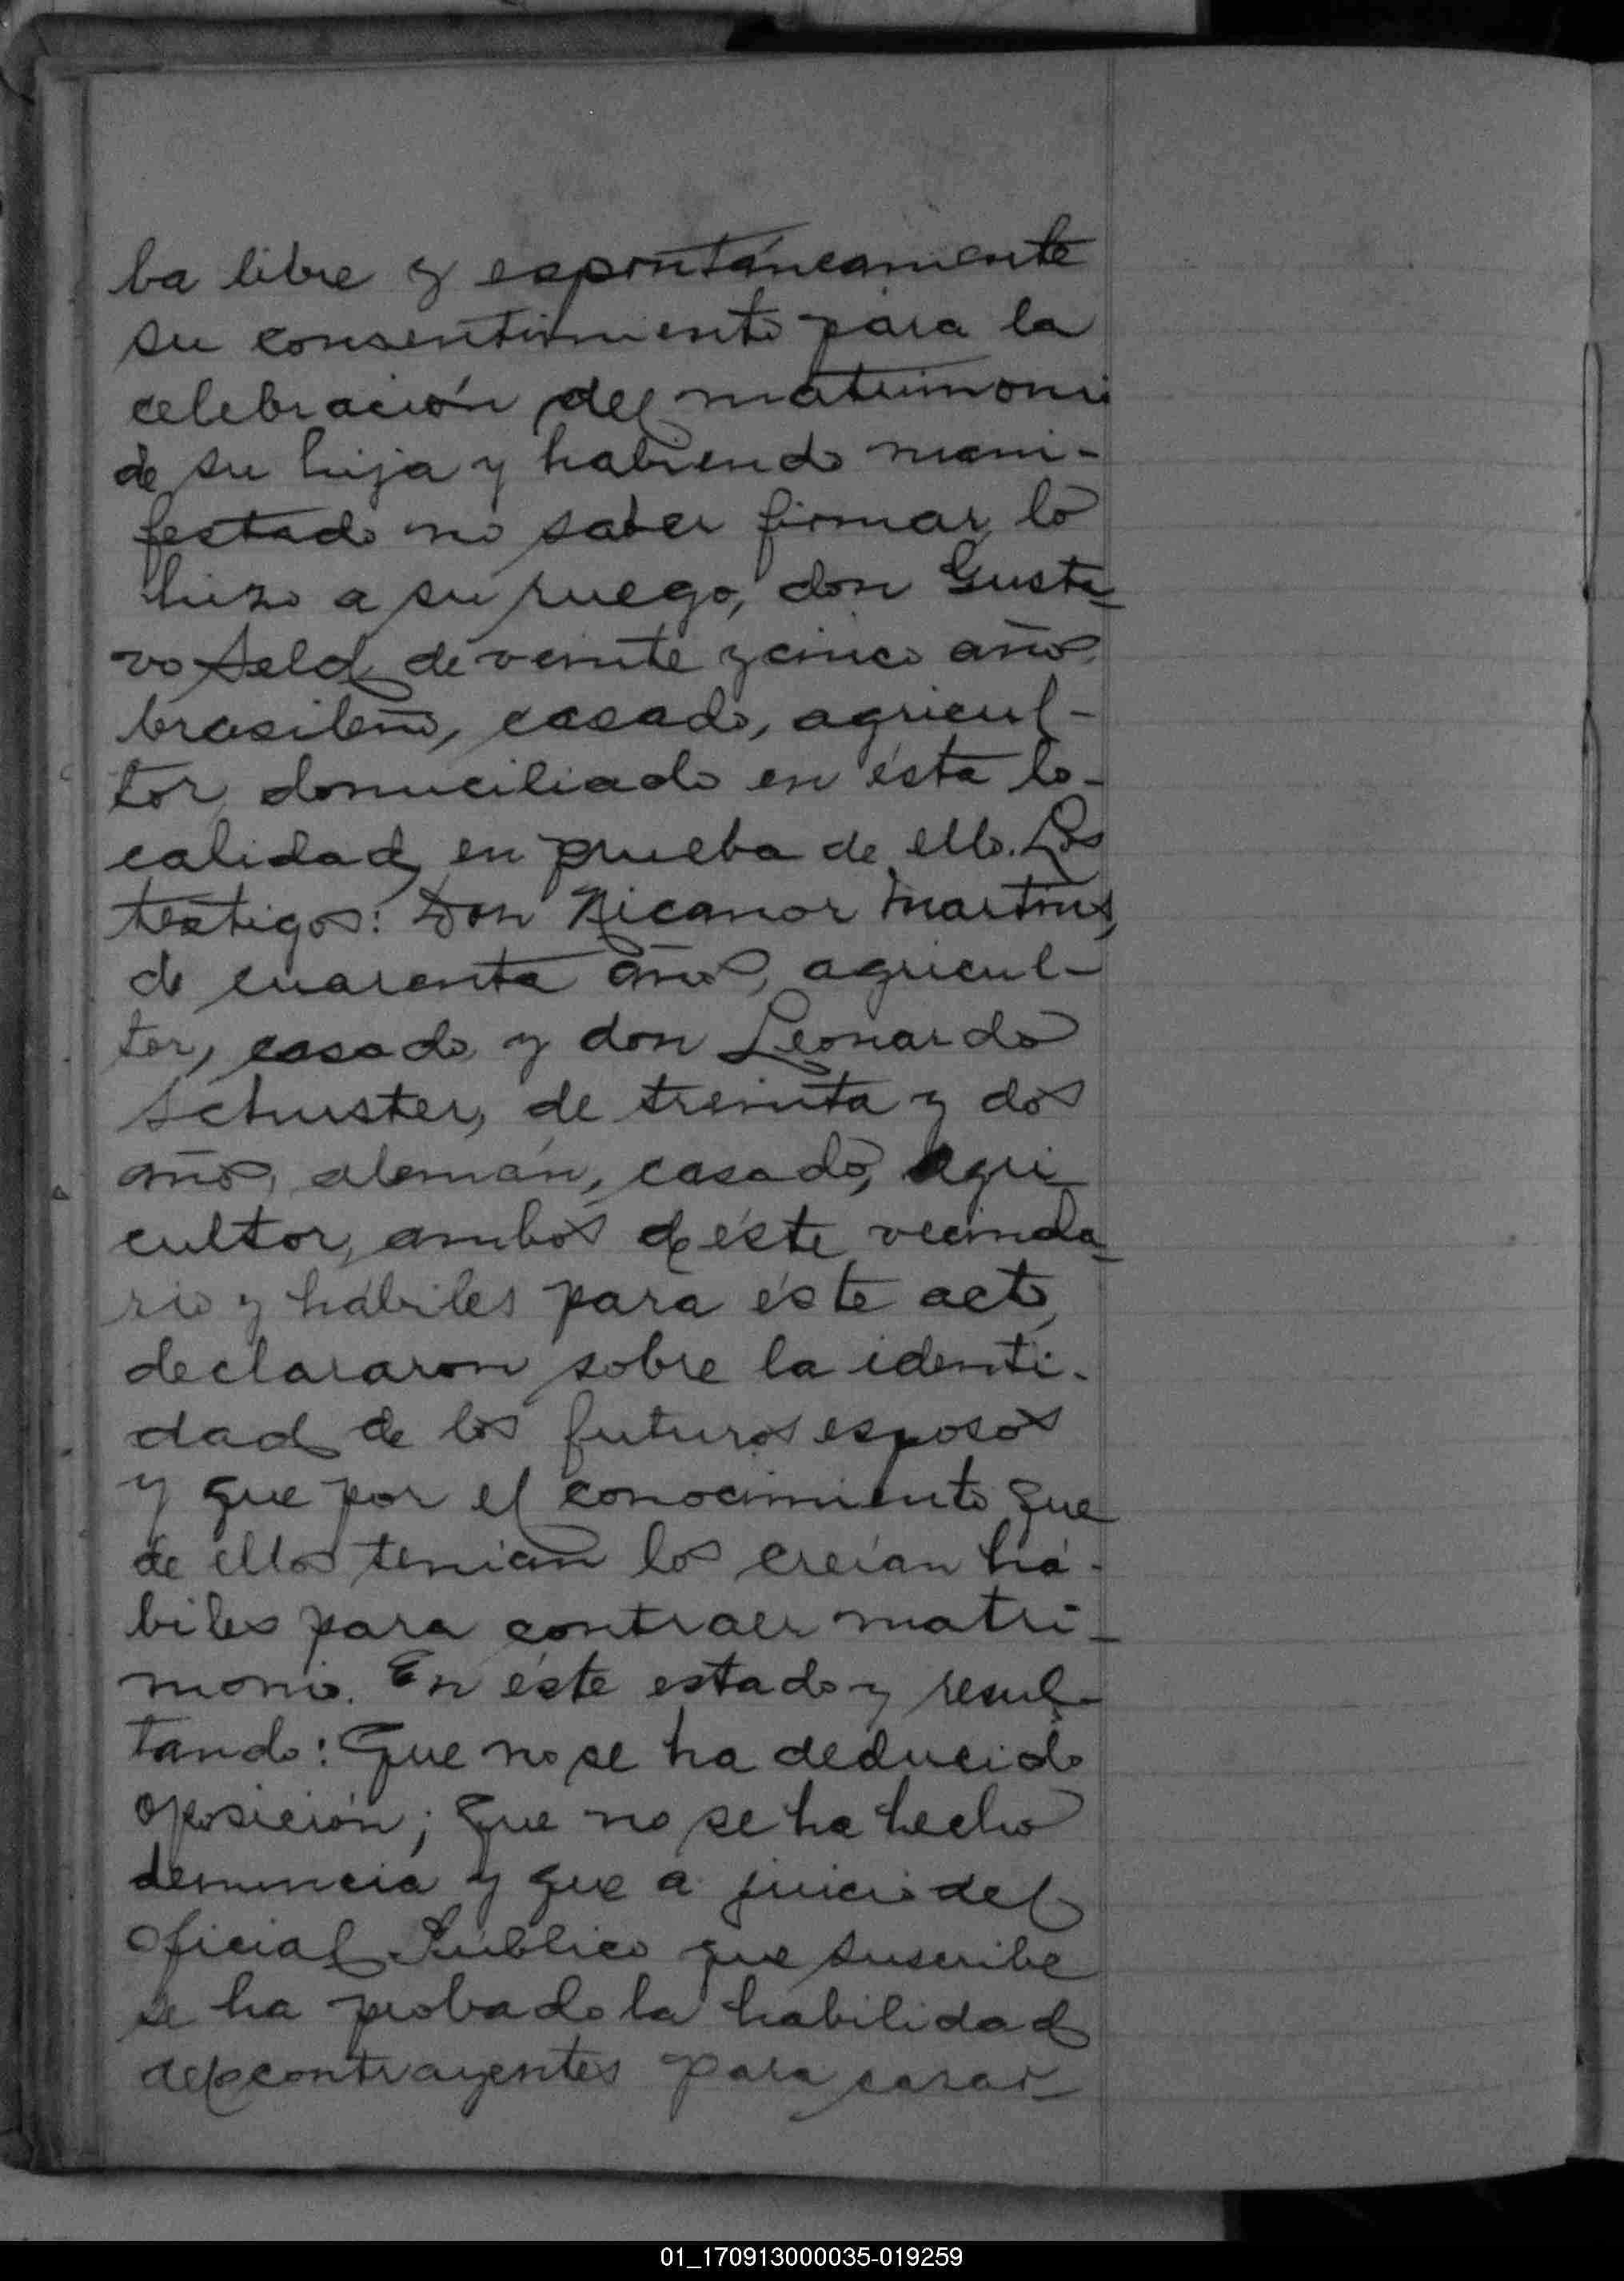 ba libre y espontáneamente
su consentimiento para la
celebración del matrimonio
de su hija y habiendo mani-
festado no saber firmar, lo
hizo a su ruego, don Gusta-
vo Seld, de veinte y cinco años,
brasileño, casado, agricul-
tor, domiciliado en ésta lo-
calidad, en prueba de ello. Los
testigos: Don Nicanor Martins,
de cuarenta años, agricul-
tor, casado y don Leonardo
Schuster, de treinta y dos
años, alemán, casado, agri
cultor, ambos de éste vecinda-
rio y hábiles para éste acto,
declararon sobre la identi-
dad de los futuros esposos
y que por el conocimiento que
de ellos tenían los creían há-
biles para contraer matri-
monio. En éste estado y resul-
tando: Que no se ha deducido
oposición; que no se ha hecho
denuncia y que a juicio del
Oficial Público que suscribe
se ha probado la habilidad
de contrayentes para casar-
01_170913000035-019259